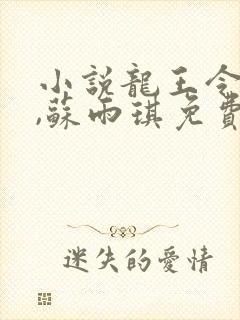 小説龍王令
,蘇雨琪免費
迷失的愛情